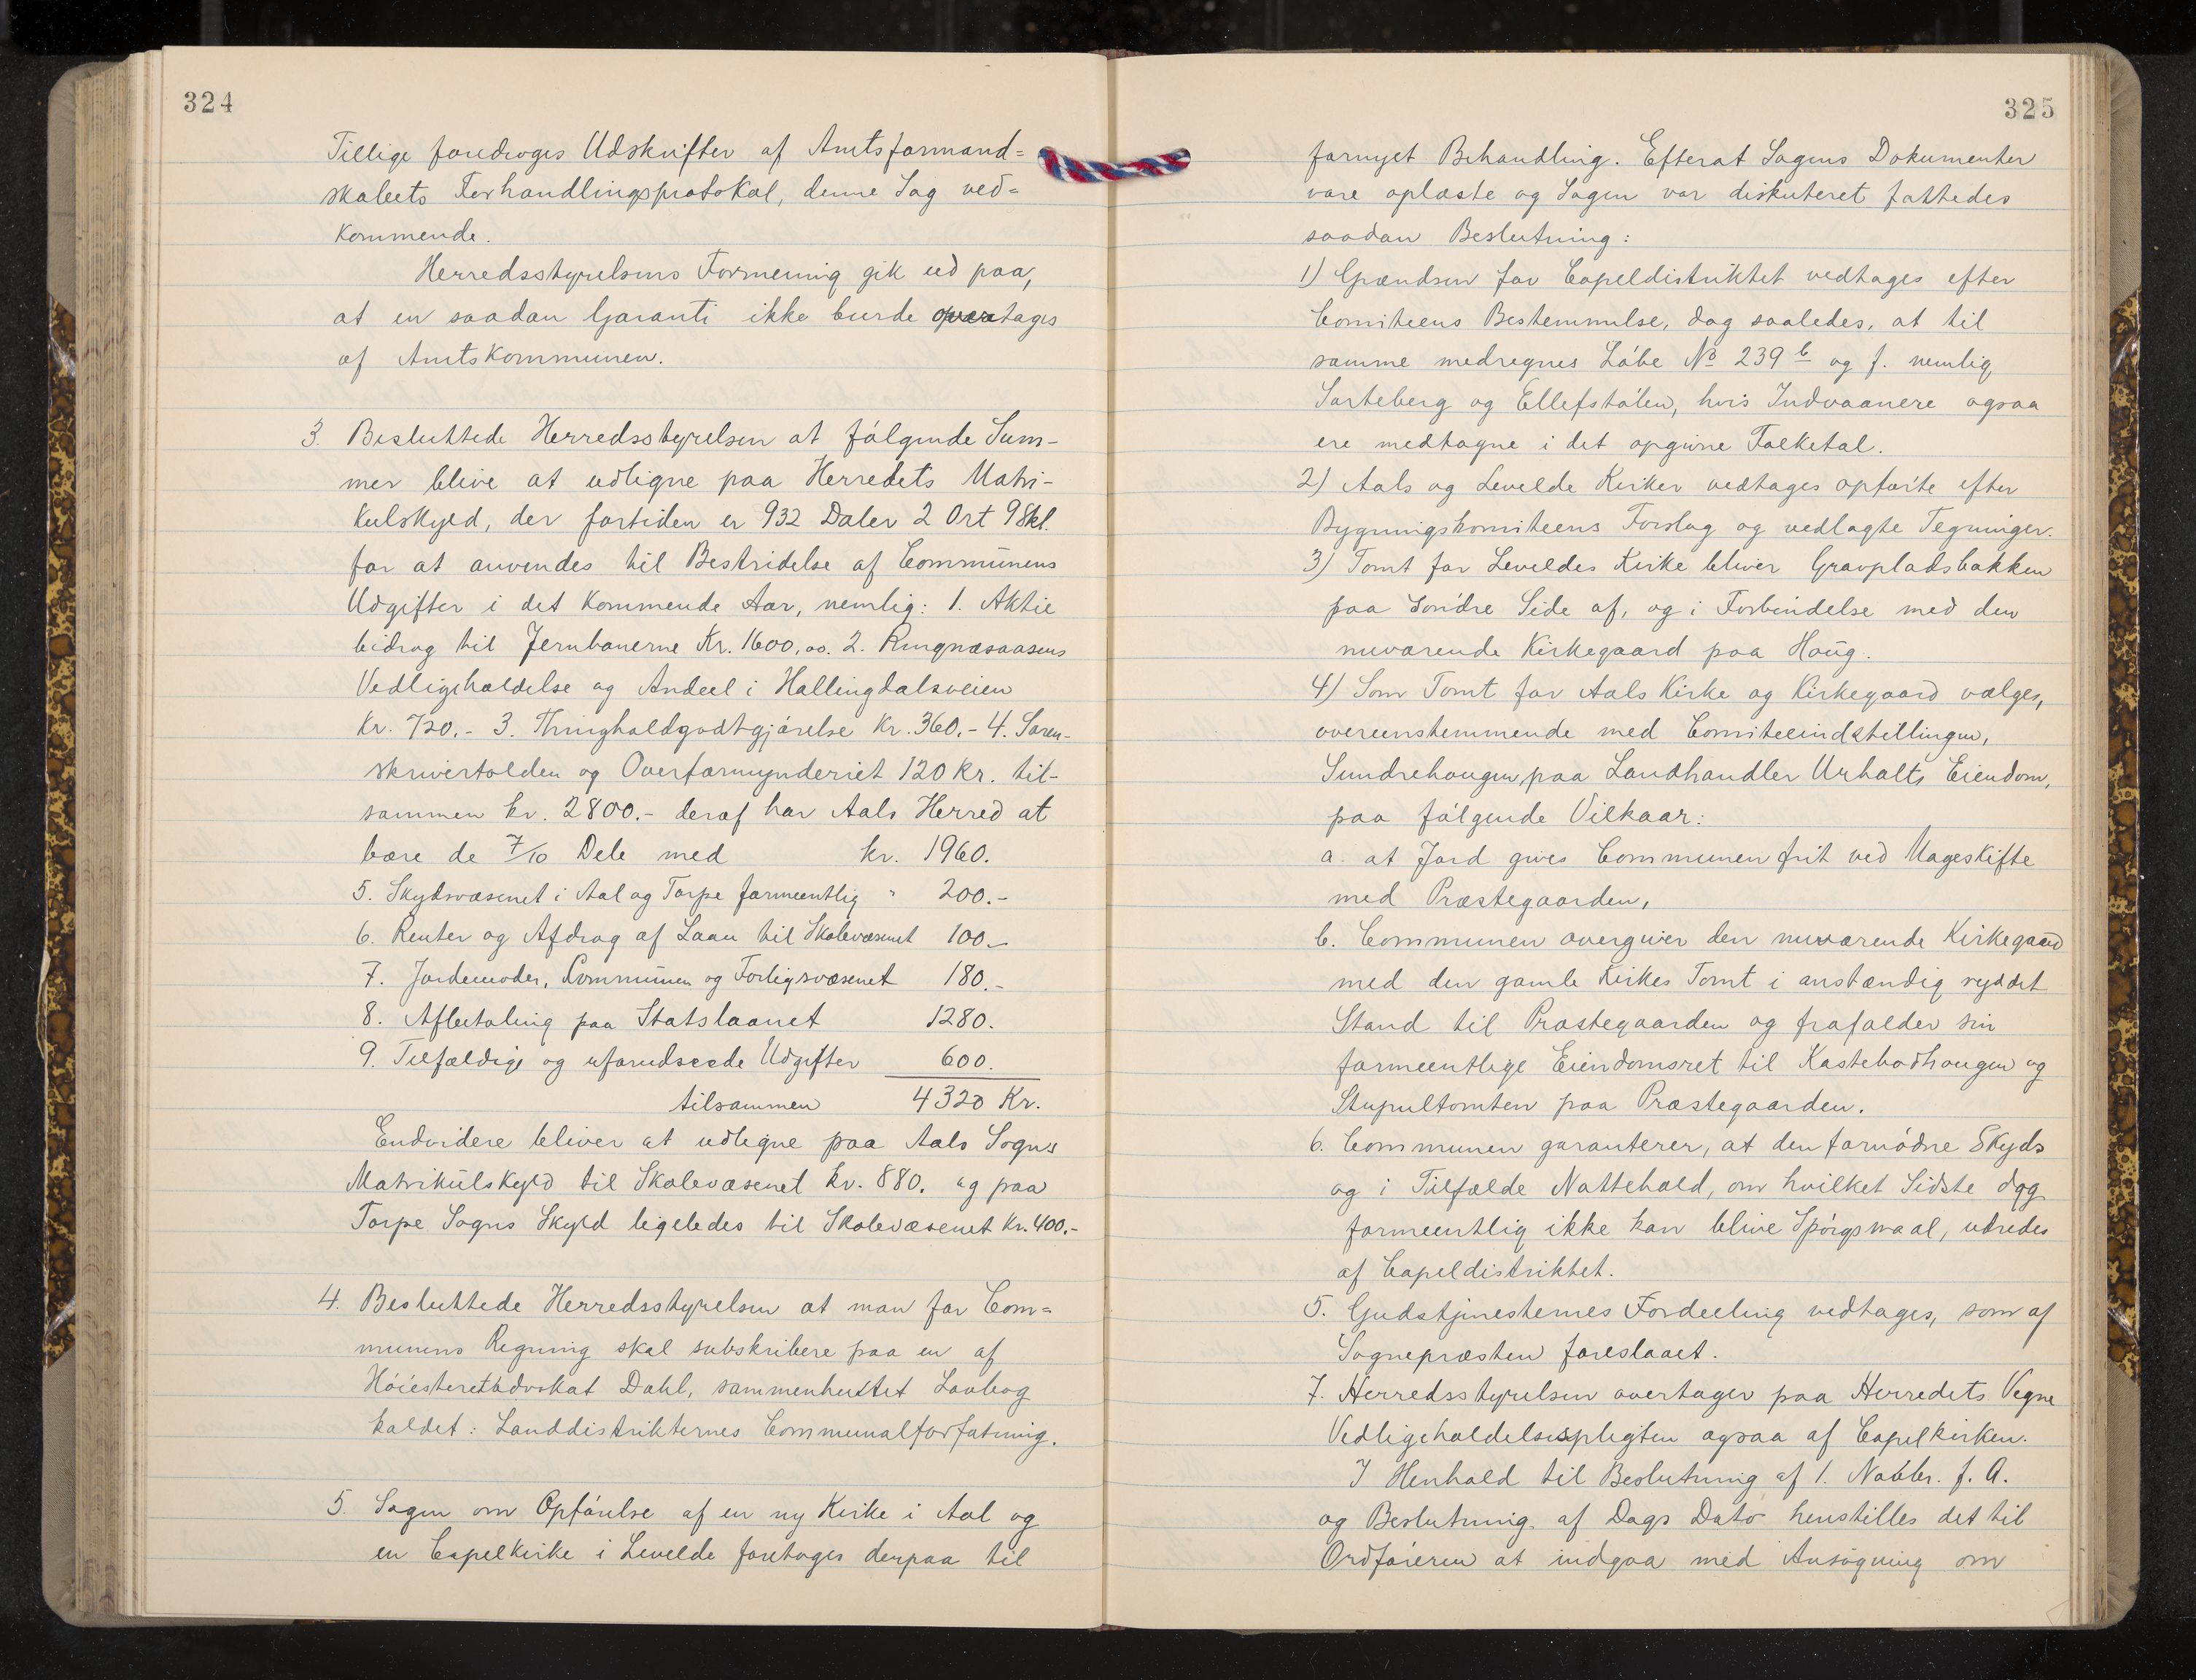 324
Tillige foredroges Udskrifter af Amtsformand=
skabets Forhandlingsprotokol, denne Sag ved=
kommende.
Herredsstyrelsens Formening gik ud paa,
at en saadan Garanti ikke burde overtages
af Amtskommunen.
3. Besluttede Herredsstyrelsen at følgende Sum-
mer blive at udligne paa Herredets Matri-
kulskyld, der fortiden er 932 Daler 2 Ort 9 Skl.
for at anvendes til Bestridelse af Communens
Udgifter i det kommende Aar, nemlig: 1. Aktie
bidrag til Jernbanerne Kr. 1600,00. 2. Ringnæsaasens
Vedligeholdelse og Andeel i Hallingdalsveien
Kr. 720.- 3. Thingholdgodtgjørelse Kr. 360.- 4. Soren-
skrivertolden og Overformynderiet 120 kr. til-
sammen kr. 2800.- deraf har Aals Herred at
bære de 7/10 Dele med kr. 1960.
5. Skydsvæsenet i Aal og Torpe formeentlig " 200.-
6. Renter og Afdrag af Laan til Skolevæsenet 100.-
7. Jordemoder, Commünen og Forligsvæsenet 180.-
8. Afbetaling paa Statslaanet 1280.
9. Tilfældige og uforudseede Udgifter 600.
tilsammen 4320 Kr.
Endvidere bliver at udligne paa Aals Sogns
Matrikülskyld til Skolevæsenet kr. 880. og paa
Torpe Sogns Skyld ligeledes til Skolevæsenet Kr. 400.-
4. Besluttede Herredsstyrelsen at man for Com=
munens Regning skal subskribere paa en af
Høiesteretadvokat Dahl, sammenhæftet Lovbog
kaldet: Landdistrikternes Communalforfatning.
5. Sagen om Opførelse af en ny Kirke i Aal og
en Capelkirke i Levelde foretoges derpaa til
325
fornyet Behandling. Efterat Sagens Dokumenter
vare oplæste og Sagen var diskuteret fattedes
saadan Beslutning:
1) Grændsen for Capeldistriktet vedtages efter
Comiteens Bestemmelse, dog saaledes, at til
samme medregnes Løbe No 239 b og f. nemlig
Sarteberg og Ellefstølen, hvis Indvaanere ogsaa
ere medtagne i det opgivne Folketal.
2) Aals og Levelde Kirker vedtages opførte efter
Bygningskomiteens Forslag og vedlagte Tegninger.
3) Tomt for Leveldes Kirke bliver Gravpladsbakken
paa Søndre Side af, og i Forbindelse med den
nuværende Kirkegaard paa Houg.
4) Som Tomt for Aals Kirke og Kirkegaard vælges,
overeenstemmende med Comiteeindstillingen,
Sundrehougen paa Landhandler Urholts Eiendom,
paa følgende Vilkaar:
a. at Jord gives Communen frit ved Mageskifte
med Præstegaarden,
b. Communen overgiver den nuværende Kirkegaard
med den gamle Kirkes Tomt i anstændig ryddet
Stand til Præstegaarden og frafalder sin
formeentlige Eiendomsret til Kastebodhougen og
Stupultomten paa Præstegaarden.
6. Communen garanterer, at den fornødne Skyds
og i Tilfælde Nattehold, om hvilket Sidste dog
formeentlig ikke kan blive Spørgsmaal, udredes
af Capeldistriktet.
5. Gudstjenesternes Fordeeling vedtages, som af
Sognepræsten foreslaaet.
7. Herredsstyrelsen overtager paa Herredets Vegne
Vedligeholdelsespligten ogsaa af Capelkirken.
I Henhold til Beslutning af 1. Novbr. f. A.
og Beslutning af Dags Dato henstilles det til
Ordføreren at indgaa med Ansøgning om